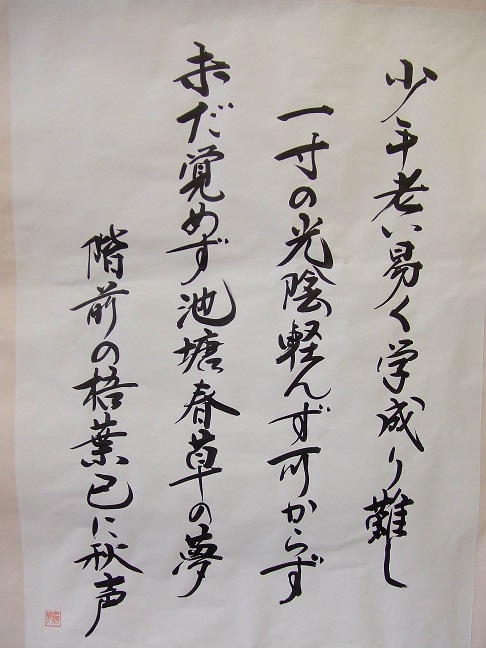 少年老い易く学成り難し
一寸の光陰軽んず可からず
未だ覚めず池塘春草の夢
階前の梧葉已に秋声